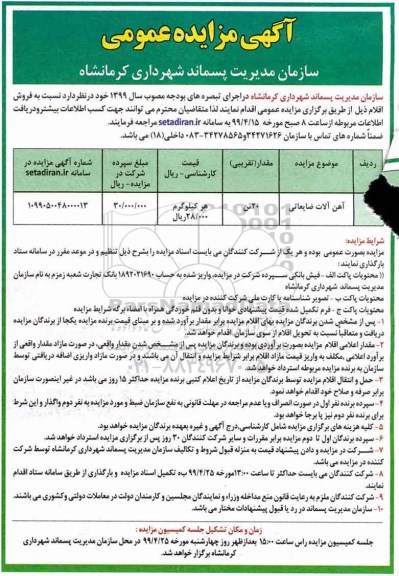 آگهی مزایده عمومی
سازمان مدیریت پسماند شهرداری کرمانشاه
سازمان مدیریت پسماند شهرداری کرمانشاه دراجرای تبصره های بودجه مصوب سال ۱۳۹۹ خود درنظردارد نسبت به فروش
اقلام ذیل از طریق برگزاری مزایده عمومی اقدام نمایند لذا متقاضیان محترم می توانند جهت کسب اطلاعات بیشترودریافت
اطلاعات مربوطه ازساعت ۸ صبح مورخه ۹۹/۴/۱۵ به سامانه setadiran.ir مراجعه فرمایند.
ضمناً شماره های تماس با سازمان ۳۴۲۷۱۶۲۶و۳۴۲۷۸۵۶۵-۰۸۳ داخلی(۱۸) می باشد.
ردیف موضوع مزایده مقدار(تقریبی) قیمت کارشناسی- ریال مبلغ سپرده شرکت در مزایده- ریال شماره آگهی مزایده در سامانه setadiran.ir
آهن آلات ضایعاتی ۲۰تن هر کیلوگرم ۲۸/۰۰۰ریال ۳۰/۰۰۰/۰۰۰ ۱۰۹۹۰۵۰۰۴۸۰۰۰۰۱۳
شرایط مزایده:
مزایده بصورت عمومی بوده و هر یک از شرکت کنندگان می بایست اسناد مزایده را بشرح ذیل تنظیم و در موعد مقرر در سامانه ستاد
بارگذاری نمایند:
(( محتویات پاکت الف - فیش بانکی سپرده شرکت در مزایده، واریز شده به حساب ۱۸۹۲۰۲۱۶۹۰ بانک تجارت شعبه زمزم به نام سازمان
مدیریت پسماند شهرداری کرمانشاه
محتویات پاکت ب - تصویر شناسنامه یا کارت ملی شرکت کننده در مزایده
محتویات پاکت ج - فرم تکمیل شده قیمت پیشنهادی خوانا و بدون قلم خوردگی همراه با امضاء برگه شرایط مزایده
۱- پس از مشخص شدن برندگان مزایده بهای اقلام مزایده برابر مقدار برآورد شده و بر مبنای قیمت برنده مزایده یکجا از برندگان مزایده
دریافت و متعاقباً نسبت به تحویل اقلام از سوی سازمان اقدام خواهد شد.
۲- مقدار اعلامی اقلام مزایده بصورت برآوردی بوده و برندگان مزایده پس از مشخص شدن مقدار واقعی، در صورت مازاد مقدار واقعی از
برآورد اعلامی ،مکلف به واریز قیمت مازاد اقلام برابر شرایط مزایده و انتقال آن می باشند و در صورت مازاد واریزی اضافه دریافتی توسط
سازمان به برنده مزایده مربوطه استرداد خواهد شد.
۳- حمل و انتقال اقلام مزایده توسط برندگان مزایده از تاریخ اعلام کتبی برنده مزایده حداکثر ۱۵ روز می باشد در غیر اینصورت سازمان
برابر صرفه و صلاح خود اقدام خواهد نمود.
۴- سپرده برنده نفر اول در صورت انصراف ویا عدم مراجعه در مهلت قانونی به نفع سازمان ضبط و مورد مزایده به نفر دوم واگذار و این شرط
برای برنده نفر دوم نیز پا برجا خواهد بود.
۵- کلیه هزینه های برگزاری مزایده شامل کارشناسی،درج آگهی و غیره بعهده برندگان مزایده خواهد بود.
۶- سپرده برندگان اول تا دوم مزایده برابر مقررات و سایر شرکت کنندگان ۳۰ روز پس از برگزاری مزایده استرداد خواهد شد.
۷- شرکت در مزایده و دادن پیشنهاد قیمت به منزله قبول شروط و تکالیف سازمان مدیریت پسماند شهرداری کرمانشاه توسط شرکت
کننده در مزایده می باشد.
۸- شرکت کنندگان می بایست حداکثر تا ساعت ۱۳:۰۰مورخه ۹۹/۴/۲۵ به تکمیل اسناد مزایده و بارگذاری از طریق سامانه ستاد اقدام
نمایند.
۹- شرکت کنندگان ملزم به رعایت قانون منع مداخله وزراء و نمایندگان مجلسین و کارمندان دولت در معاملات دولتی وکشوری می باشند.
۱۰- سازمان مدیریت پسماند در رد یا قبول پیشنهادات مختار می باشد.
زمان و مکان تشکیل جلسه کمیسیون مزایده :
جلسه کمیسیون مزایده راس ساعت ۱۵:۰۰ بعدازظهر روز چهارشنبه مورخه ۹۹/۴/۲۵ در محل سازمان مدیریت پسماند شهرداری
کرمانشاه برگزار خواهد شد.